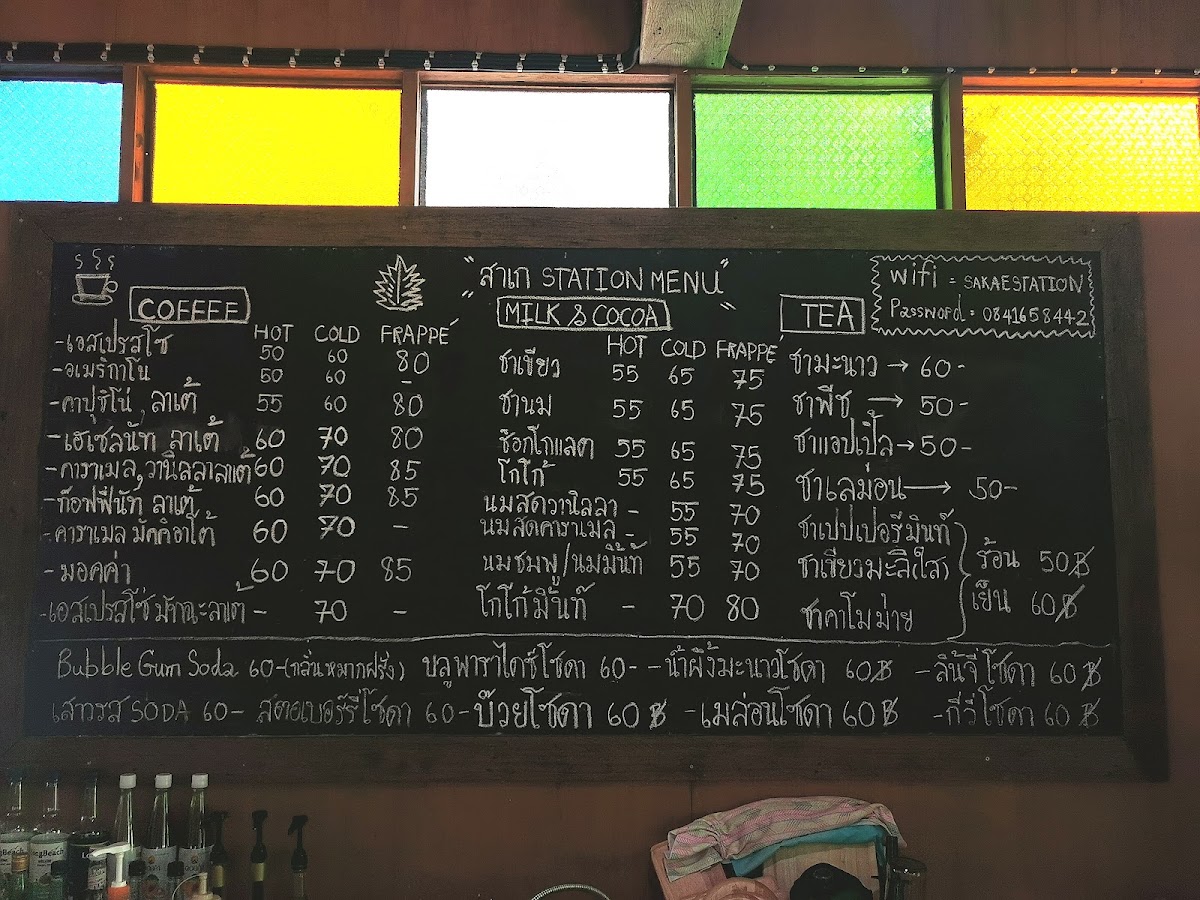 "สาเก STATION MENU"
wifi = SAKAESTATION
Password = 0841658442
COFFEE
HOT COLD FRAPPE´
-เอสเปรสโซ 50 60 80
-อเมริกาโน 50 60 -
-คาปูชิโน่, ลาเต้ 55 60 80
-เฮเซลนัท ลาเต้ 60 70 80
-คาราเมล,วานิลลาลาเต้ 60 70 85
-ท๊อฟฟี่นัท ลาเต้ 60 70 85
-คาราเมล มัคคิอาโต้ 60 70 -
-มอคค่า 60 70 85
-เอสเปรสโซ่ มัทฉะลาเต้ - 70 -
MILK & COCOA
HOT COLD FRAPPE´
ชาเขียว 55 65 75
ชานม 55 65 75
ช็อกโกแลต 55 65 75
โกโก้ 55 65 75
นมสดวานิลลา - 55 70
นมสดคาราเมล - 55 70
นมชมพู/นมมิ้นท์ 55 70
โกโก้มิ้นท์ - 70 80
TEA
ชามะนาว → 60-
ชาพีช → 50-
ชาแอปเปิ้ล → 50-
ชาเลม่อน → 50-
ชาเปปเปอร์มินท์
ชาเขียวมะลิ(ใส)
ชาคาโมมาย
ร้อน 50฿
เย็น 60฿
Bubble Gum Soda 60-(กลิ่นหมากฝรั่ง) บลูพาราไดซ์โซดา 60- -น้ำผึ้งมะนาวโซดา 60฿ -ลิ้นจี่โซดา 60฿
เสาวรส SODA 60- สตอเบอร์รี่โซดา 60- -บ๊วยโซดา 60฿ -เมล่อนโซดา 60฿ -กีวี่โซดา 60฿